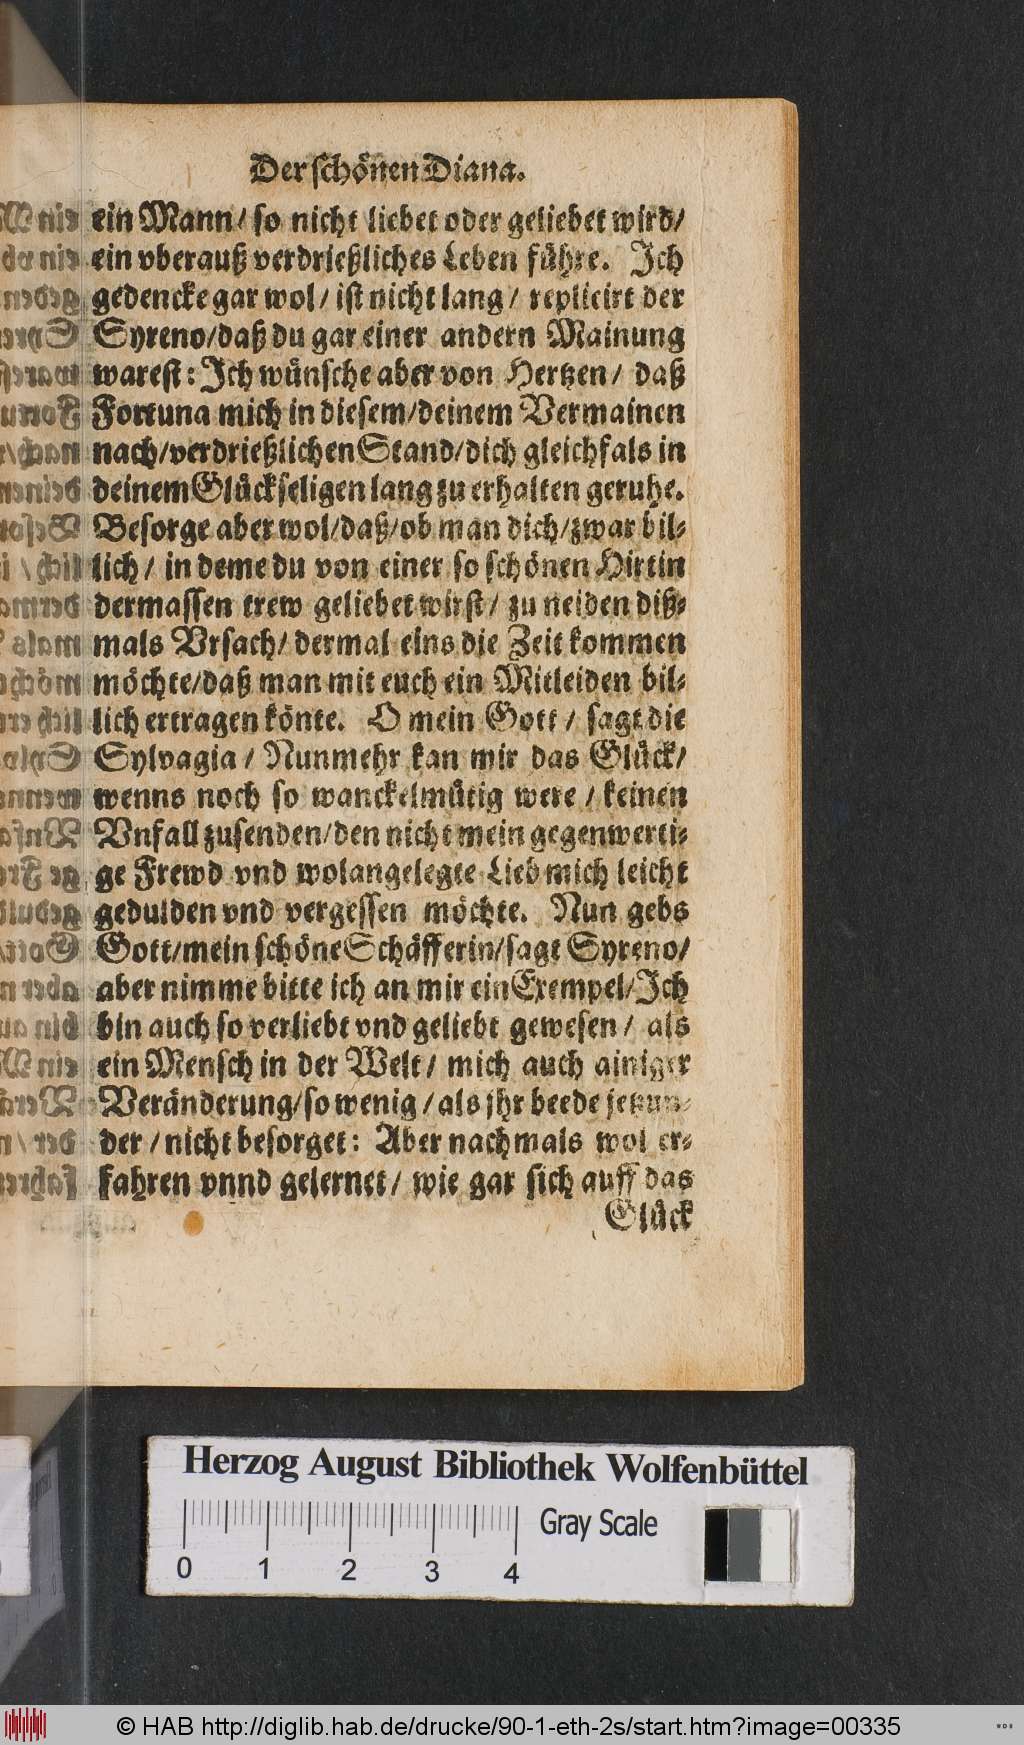 Der schönen Diana.
ein Mann/ so nicht liebet oder geliebet wird/
ein vberauß verdrießliches Leben führe. Ich
gedencke gar wol/ ist nicht lang/ replicirt der
Syreno/daß du gar einer andern Mainung
warest: Ich wünsche aber von Hertzen/ daß
Fortuna mich in diesem/deinem Vermainen
nach/verdrießlichen Stand/dich gleichfals in
deinem Glückseligen lang zu erhalten geruhe.
Besorge aber wol/daß/ob man dich/zwar bil-
lich/ in deme du von einer so schönen Hirtin
dermassen trew geliebet wirst/ zu neiden diß-
mals Vrsach/ dermal eins die Zeit kommen
möchte/daß man mit euch ein Mitleiden bil-
lich ertragen könte. O mein Gott/ sagt die
Sylvagia/ Nunmehr kan mir das Glück/
wenns noch so wanckelmütig were/ keinen
Vnfall zusenden/den nicht mein gegenwerti-
ge Frewd vnd wolangelegte Lieb mich leicht
gedulden vnd vergessen möchte. Nun gebs
Gott/mein schöne Schäfferin/sagt Syreno/
aber nimme bitte ich an mir ein Exempel/Ich
bin auch so verliebt vnd geliebt gewesen/ als
ein Mensch in der Welt/ mich auch ainiger
Veränderung/so wenig/als jhr beede jetzun-
der/nicht besorget: Aber nachmals wol er-
fahren vnnd gelernet/ wie gar sich auff das
Glück
Herzog August Bibliothek Wolfenbüttel
0 1 2 3 4 Gray Scale
© HAB http://diglib.hab.de/drucke/90-1-eth-2s/start.htm?image=00335